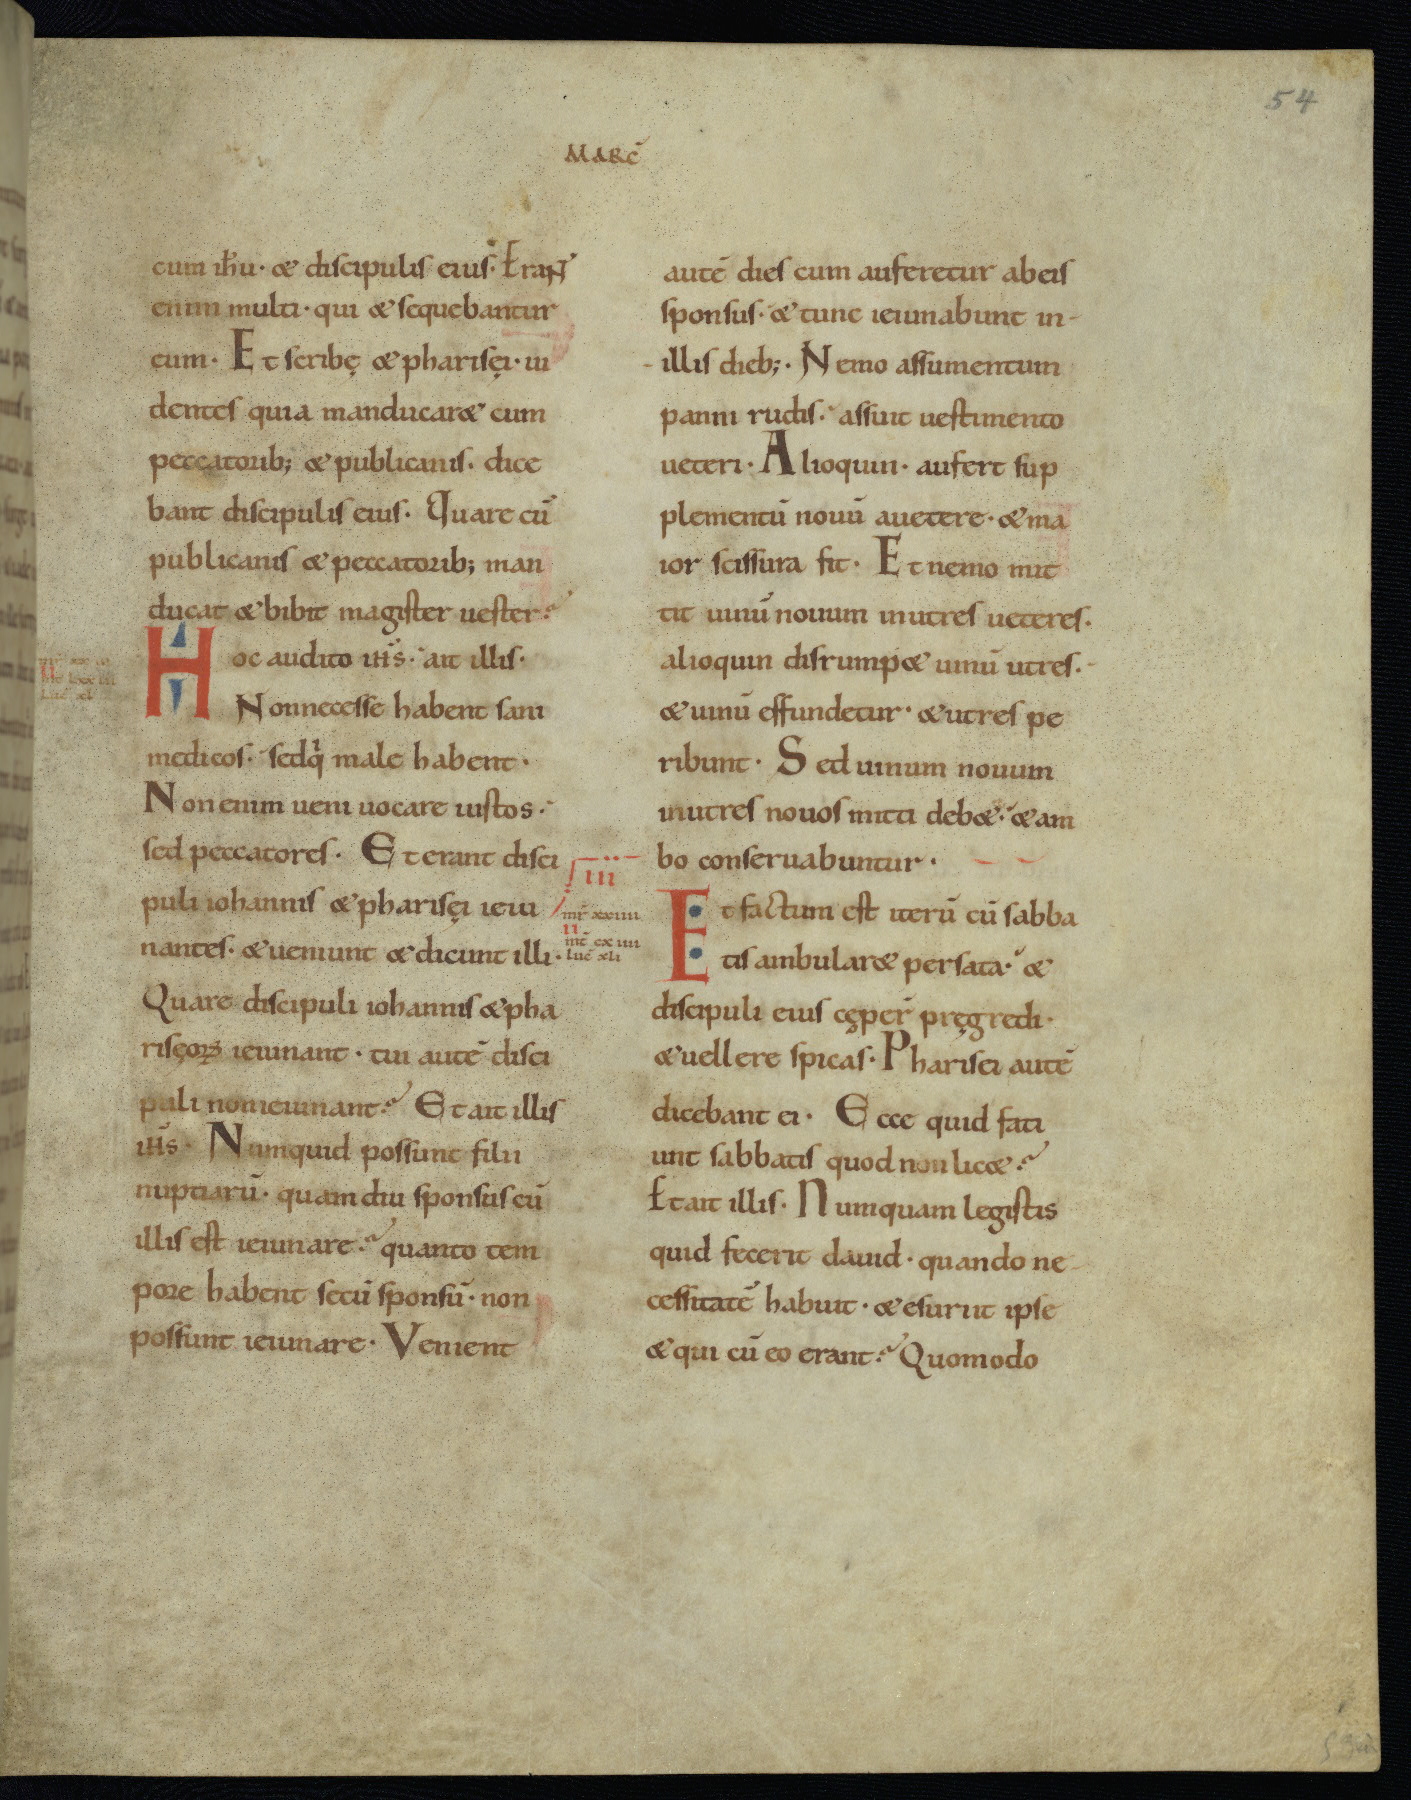 54
MARC̄
cum ih̄u· & discipulis eius· ERANT
enim multi· qui & sequebantur
eum· Et scribę & pharisęi· ui
dentes quia manducar& cum
peccatorib; & publicanis· dice
bant discipulis eius· Quare cū
publicanis & peccatorib; man
ducat & bibit magister uester?
Hoc audito ih̄s· ait illis·
Non necesse habent sani
medicos· sed qⁱ male habent·
Non enim ueni uocare iustos·
sed peccatores· Et erant disci
puli iohannis & pharisęi ieiu
nantes· & ueniunt & dicunt illi·
Quare discipuli iohannis & pha
risęoꝝ ieiunant· tui autē disci
puli non ieiunant? Et ait illis
ih̄s· Numquid possunt filii
nuptiarū· quam diu sponsus cū
illis est ieiunare? quanto tem
pore habent secū sponsū· non
possunt ieiunare· Venient
iii
mr̄ xxiiii
ii
mt̄ cxiiii
luc̄ xli
autē dies cum auferetur ab eis
sponsus· & tunc ieiunabunt in-
-illis dieb;· Nemo assumentum
panni rudis· assuit uestimento
ueteri· Alioquin· aufert sup
plementū nouū a uetere· & ma
ior scissura fit· Et nemo mit
tit uinū nouum in utres ueteres·
alioquin disrump& uinū utres·
& uinū effundetur· & utres pe
ribunt· Sed uinum nouum
in utres nouos mitti deb&· & am
bo conseruabuntur·
Et factum est iterū cū sabba
tis ambular& per sata· &
discipuli eius cęper̄ pręgredi·
& uellere spicas· Pharisei autē
dicebant ei· Ecce quid faci
unt sabbatis quod non lic&?
Et ait illis· Numquam legistis
quid fecerit dauid· quando ne
cessitatē habuit· & esuriit ipse
& qui cū eo erant? Quomodo